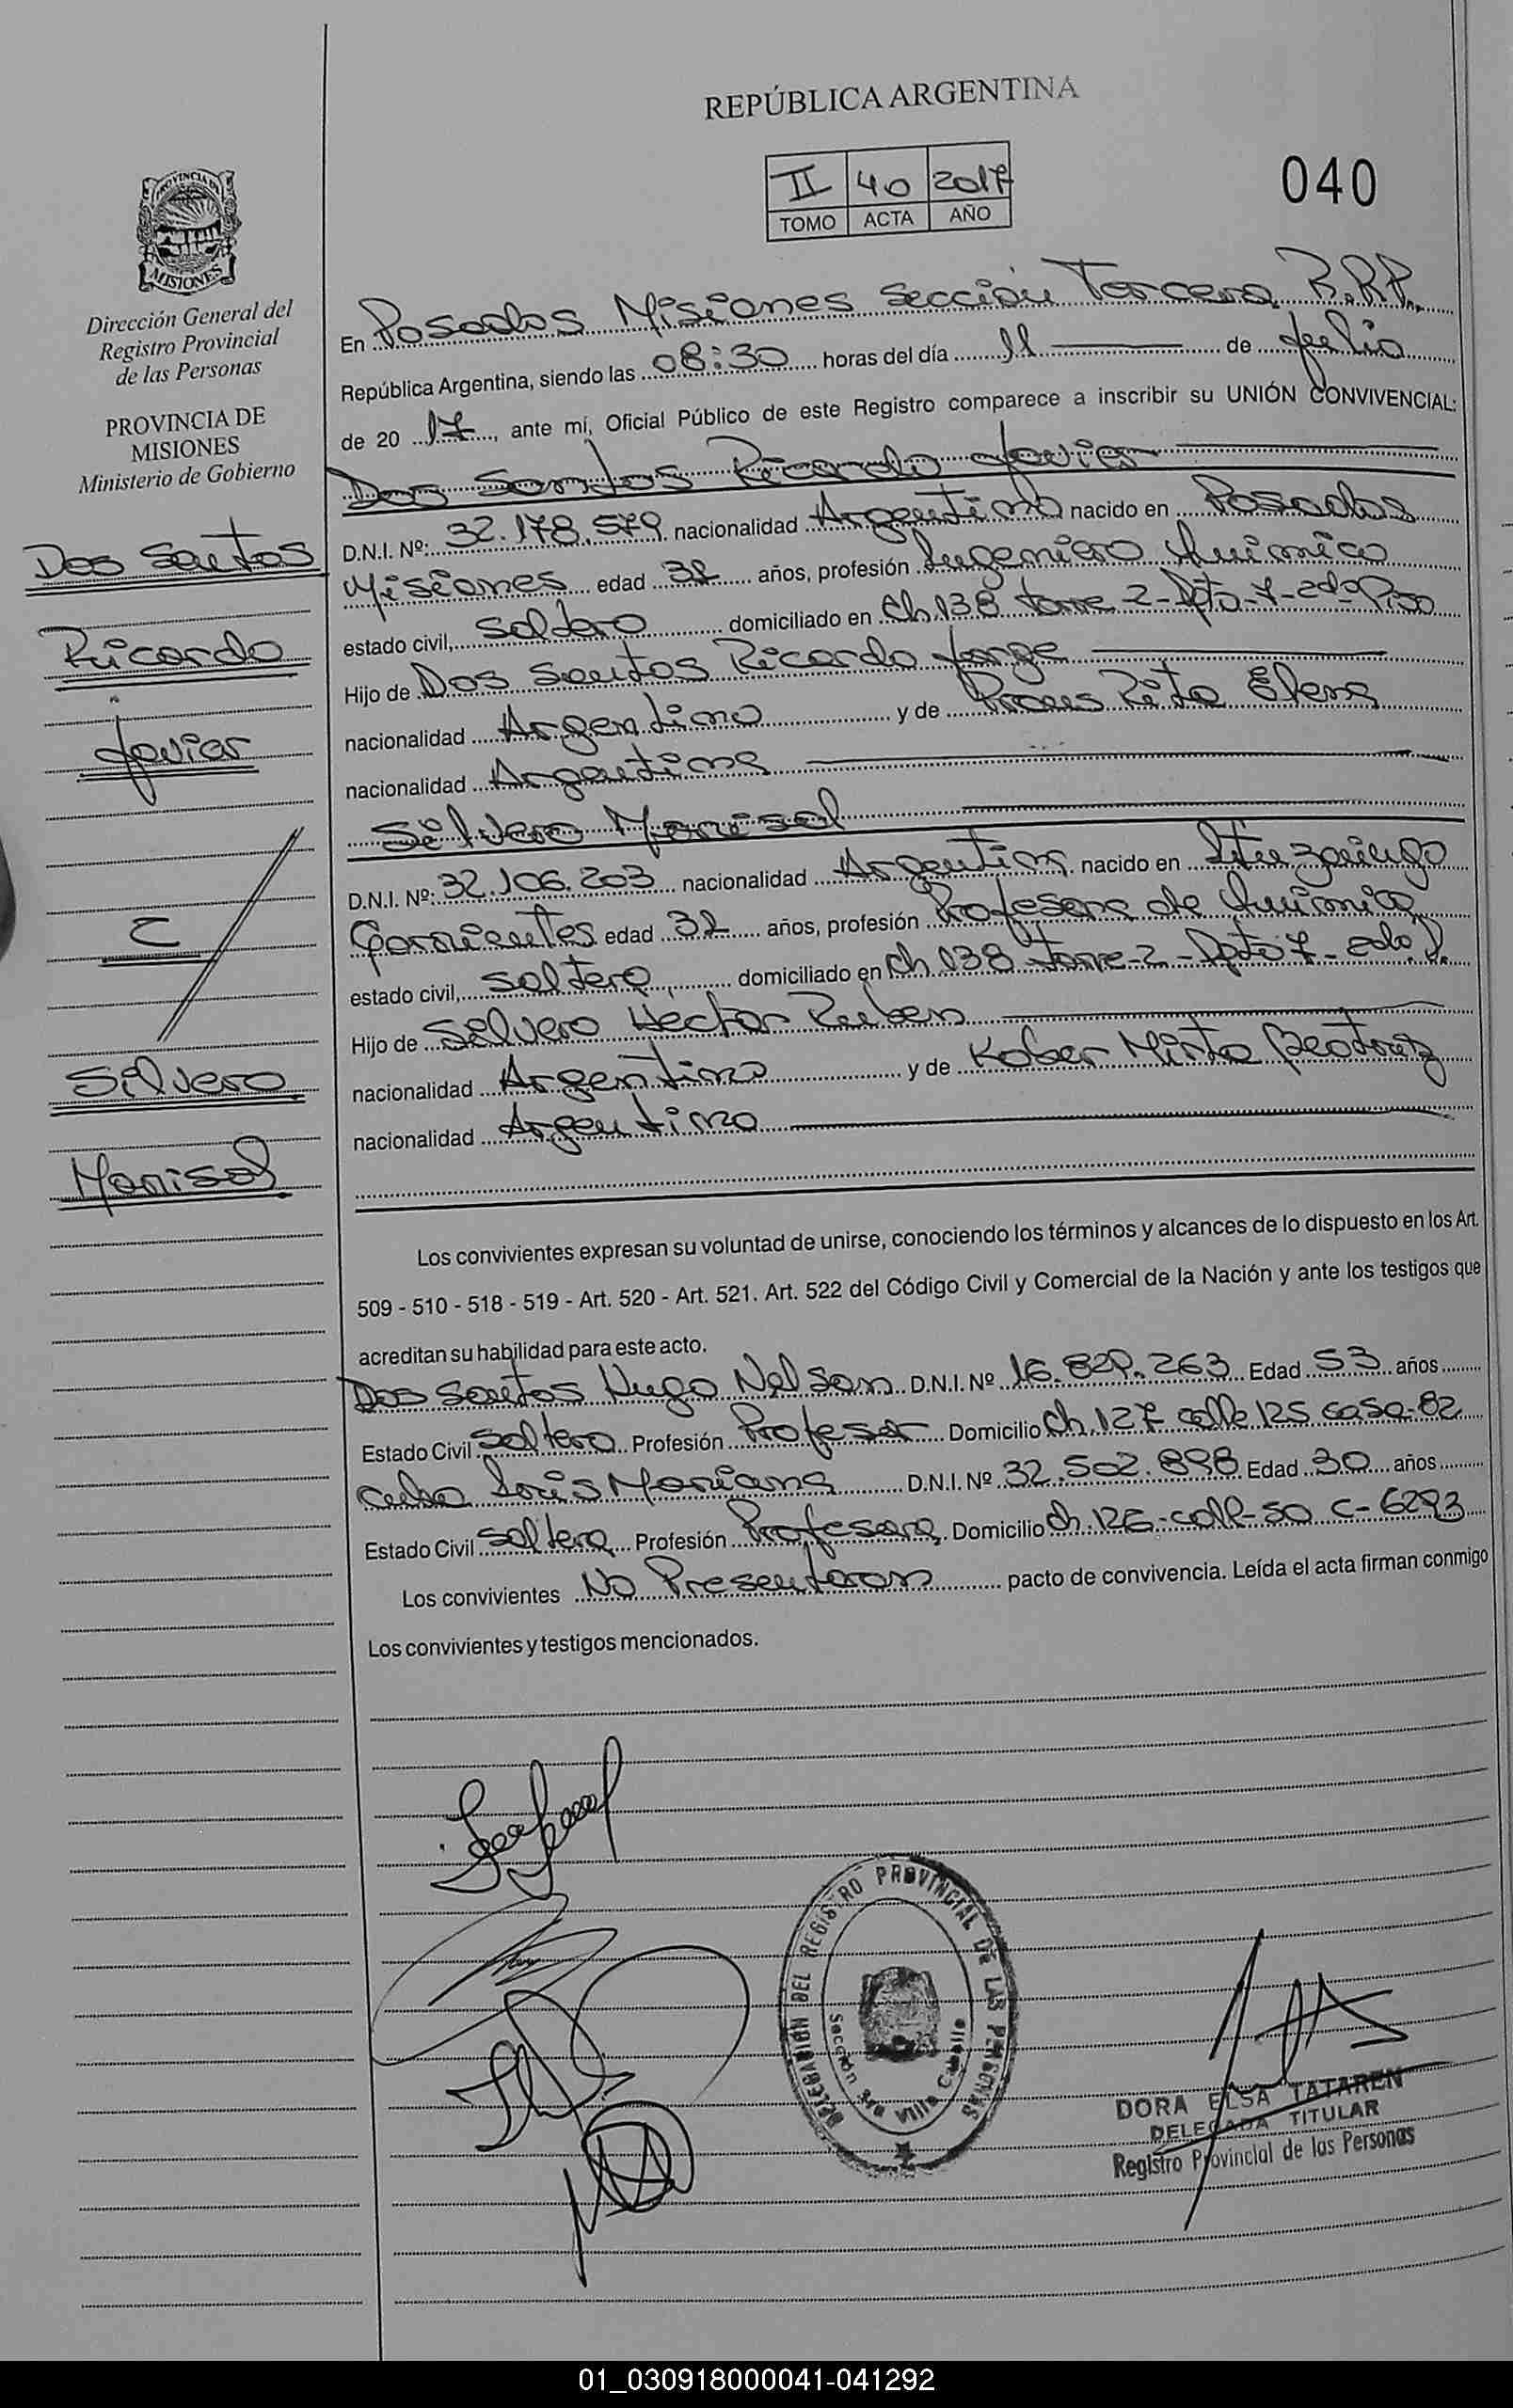 REPÚBLICA ARGENTINA
II 40 2017
TOMO ACTA AÑO
040
PROVINCIA DE
MISIONES
Dirección General del
Registro Provincial
de las Personas
PROVINCIA DE
MISIONES
Ministerio de Gobierno
Dos Santos
Ricardo
Javier
C
Silvero
Marisol
En Posadas Misiones Sección Tercera R.P.P.
República Argentina, siendo las 08:30 horas del día 11 de Julio
de 20 17, ante mí, Oficial Público de este Registro comparece a inscribir su UNIÓN CONVIVENCIAL:
Dos Santos Ricardo Javier
D.N.I. Nº: 32.178.579 nacionalidad Argentino nacido en Posadas
Misiones edad 32 años, profesión Ingeniero Quimico
estado civil, soltero domiciliado en Ch 138 torre 2-Dpto-7-2do Piso
Hijo de Dos Santos Ricardo Jorge
nacionalidad Argentino y de Rita Elena
nacionalidad Argentina
Silvero Marisol
D.N.I. Nº: 32.106.203 nacionalidad Argentina nacido en Ituzaingo
Corrientes edad 32 años, profesión Profesora de Quimica
estado civil, soltera domiciliado en Ch 138 torre-2-Dpto 7-2do.P.
Hijo de Silvero Hector Ruben
nacionalidad Argentino y de Kober Mirta Beatriz
nacionalidad Argentina
Los convivientes expresan su voluntad de unirse, conociendo los términos y alcances de lo dispuesto en los Art.
509 - 510 - 518 - 519 - Art. 520 - Art. 521. Art. 522 del Código Civil y Comercial de la Nación y ante los testigos que
acreditan su habilidad para este acto.
Dos Santos Hugo Nelson D.N.I. Nº 16.829.263 Edad 53 años
Estado Civil Soltero Profesión Profesor Domicilio Ch.127 calle 125 casa-82
Mariana D.N.I. Nº 32.502.898 Edad 30 años
Estado Civil Soltera Profesión Profesora Domicilio Ch.126-calle-50 C-6293
Los convivientes No Presentaron pacto de convivencia. Leída el acta firman conmigo
Los convivientes y testigos mencionados.
DELEGACIÓN DEL REGISTRO PROVINCIAL DE LAS PERSONAS
Sección 3ra Villa Cabello
DORA ELSA TATAREN
DELEGADA TITULAR
Registro Provincial de las Personas
01_030918000041-041292